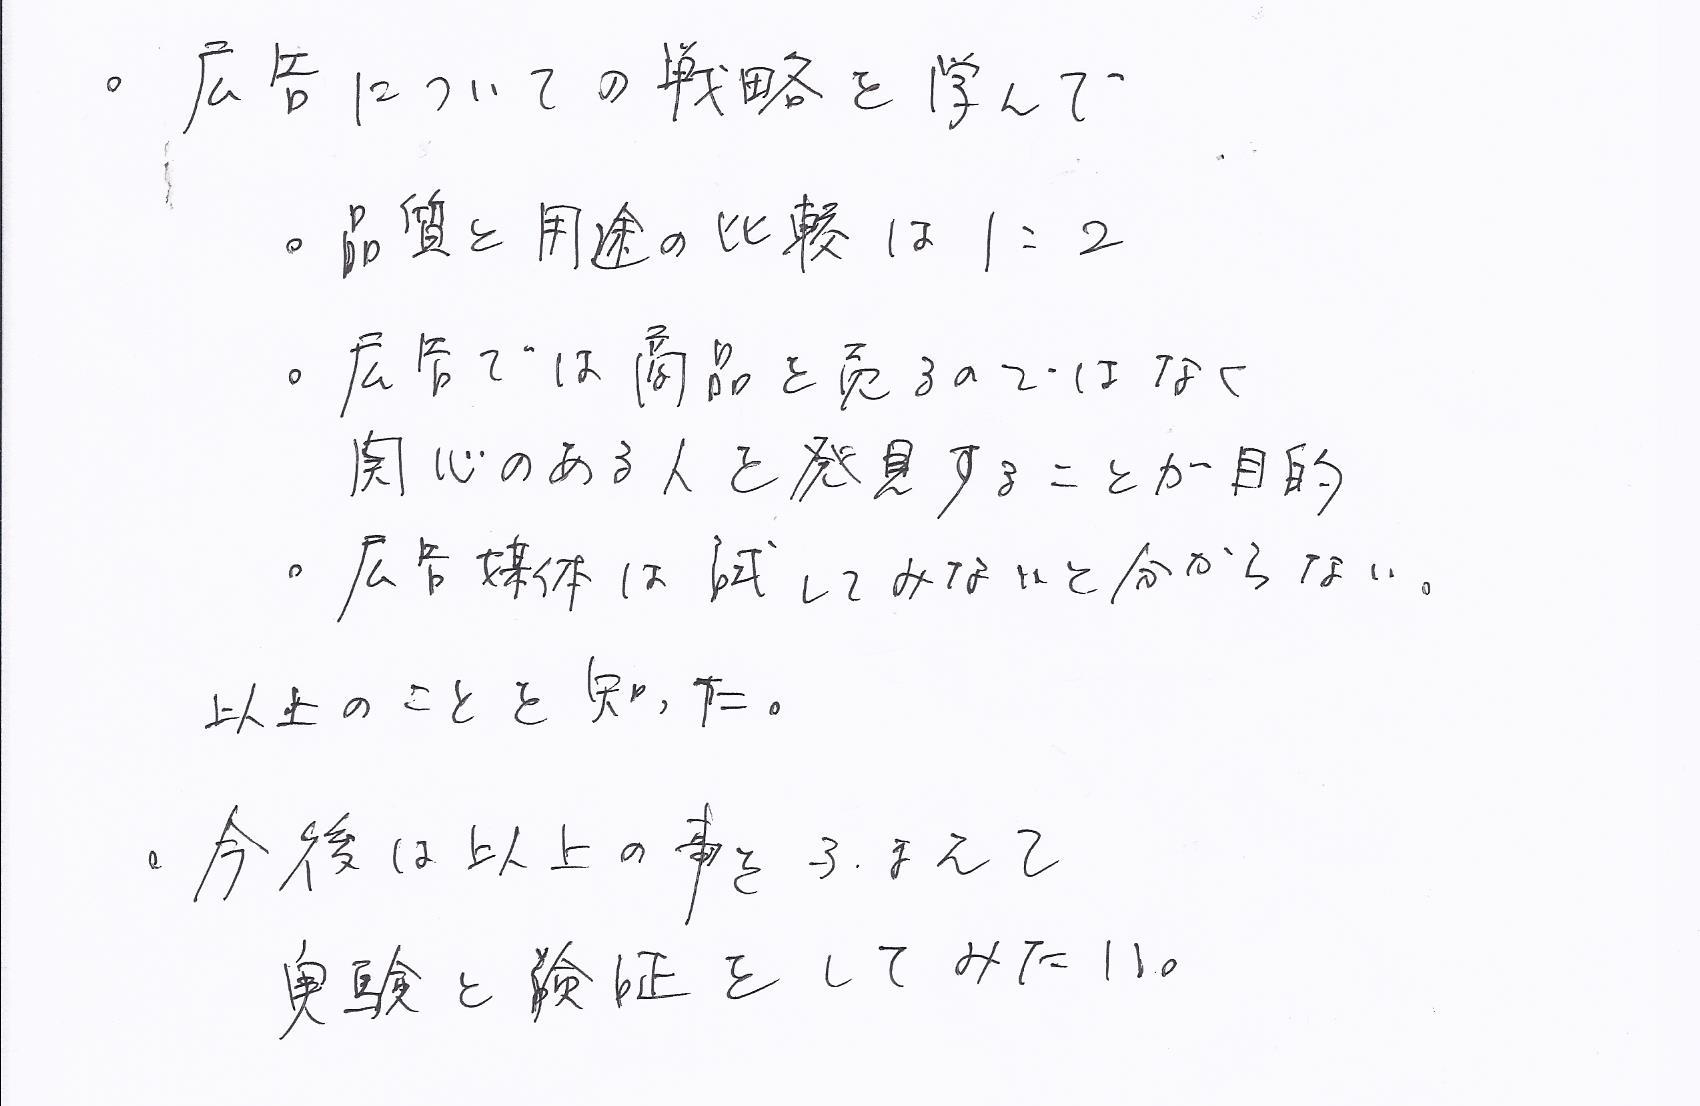 。広告についての戦略を学んで
。品質と用途の比較は1:2
。広告では商品を売るのではなく
関心のある人を発見することが目的
。広告媒体は試してみないと分からない。
以上のことを知った。
。今後は以上の事をふまえて
実験と検証をしてみたい。